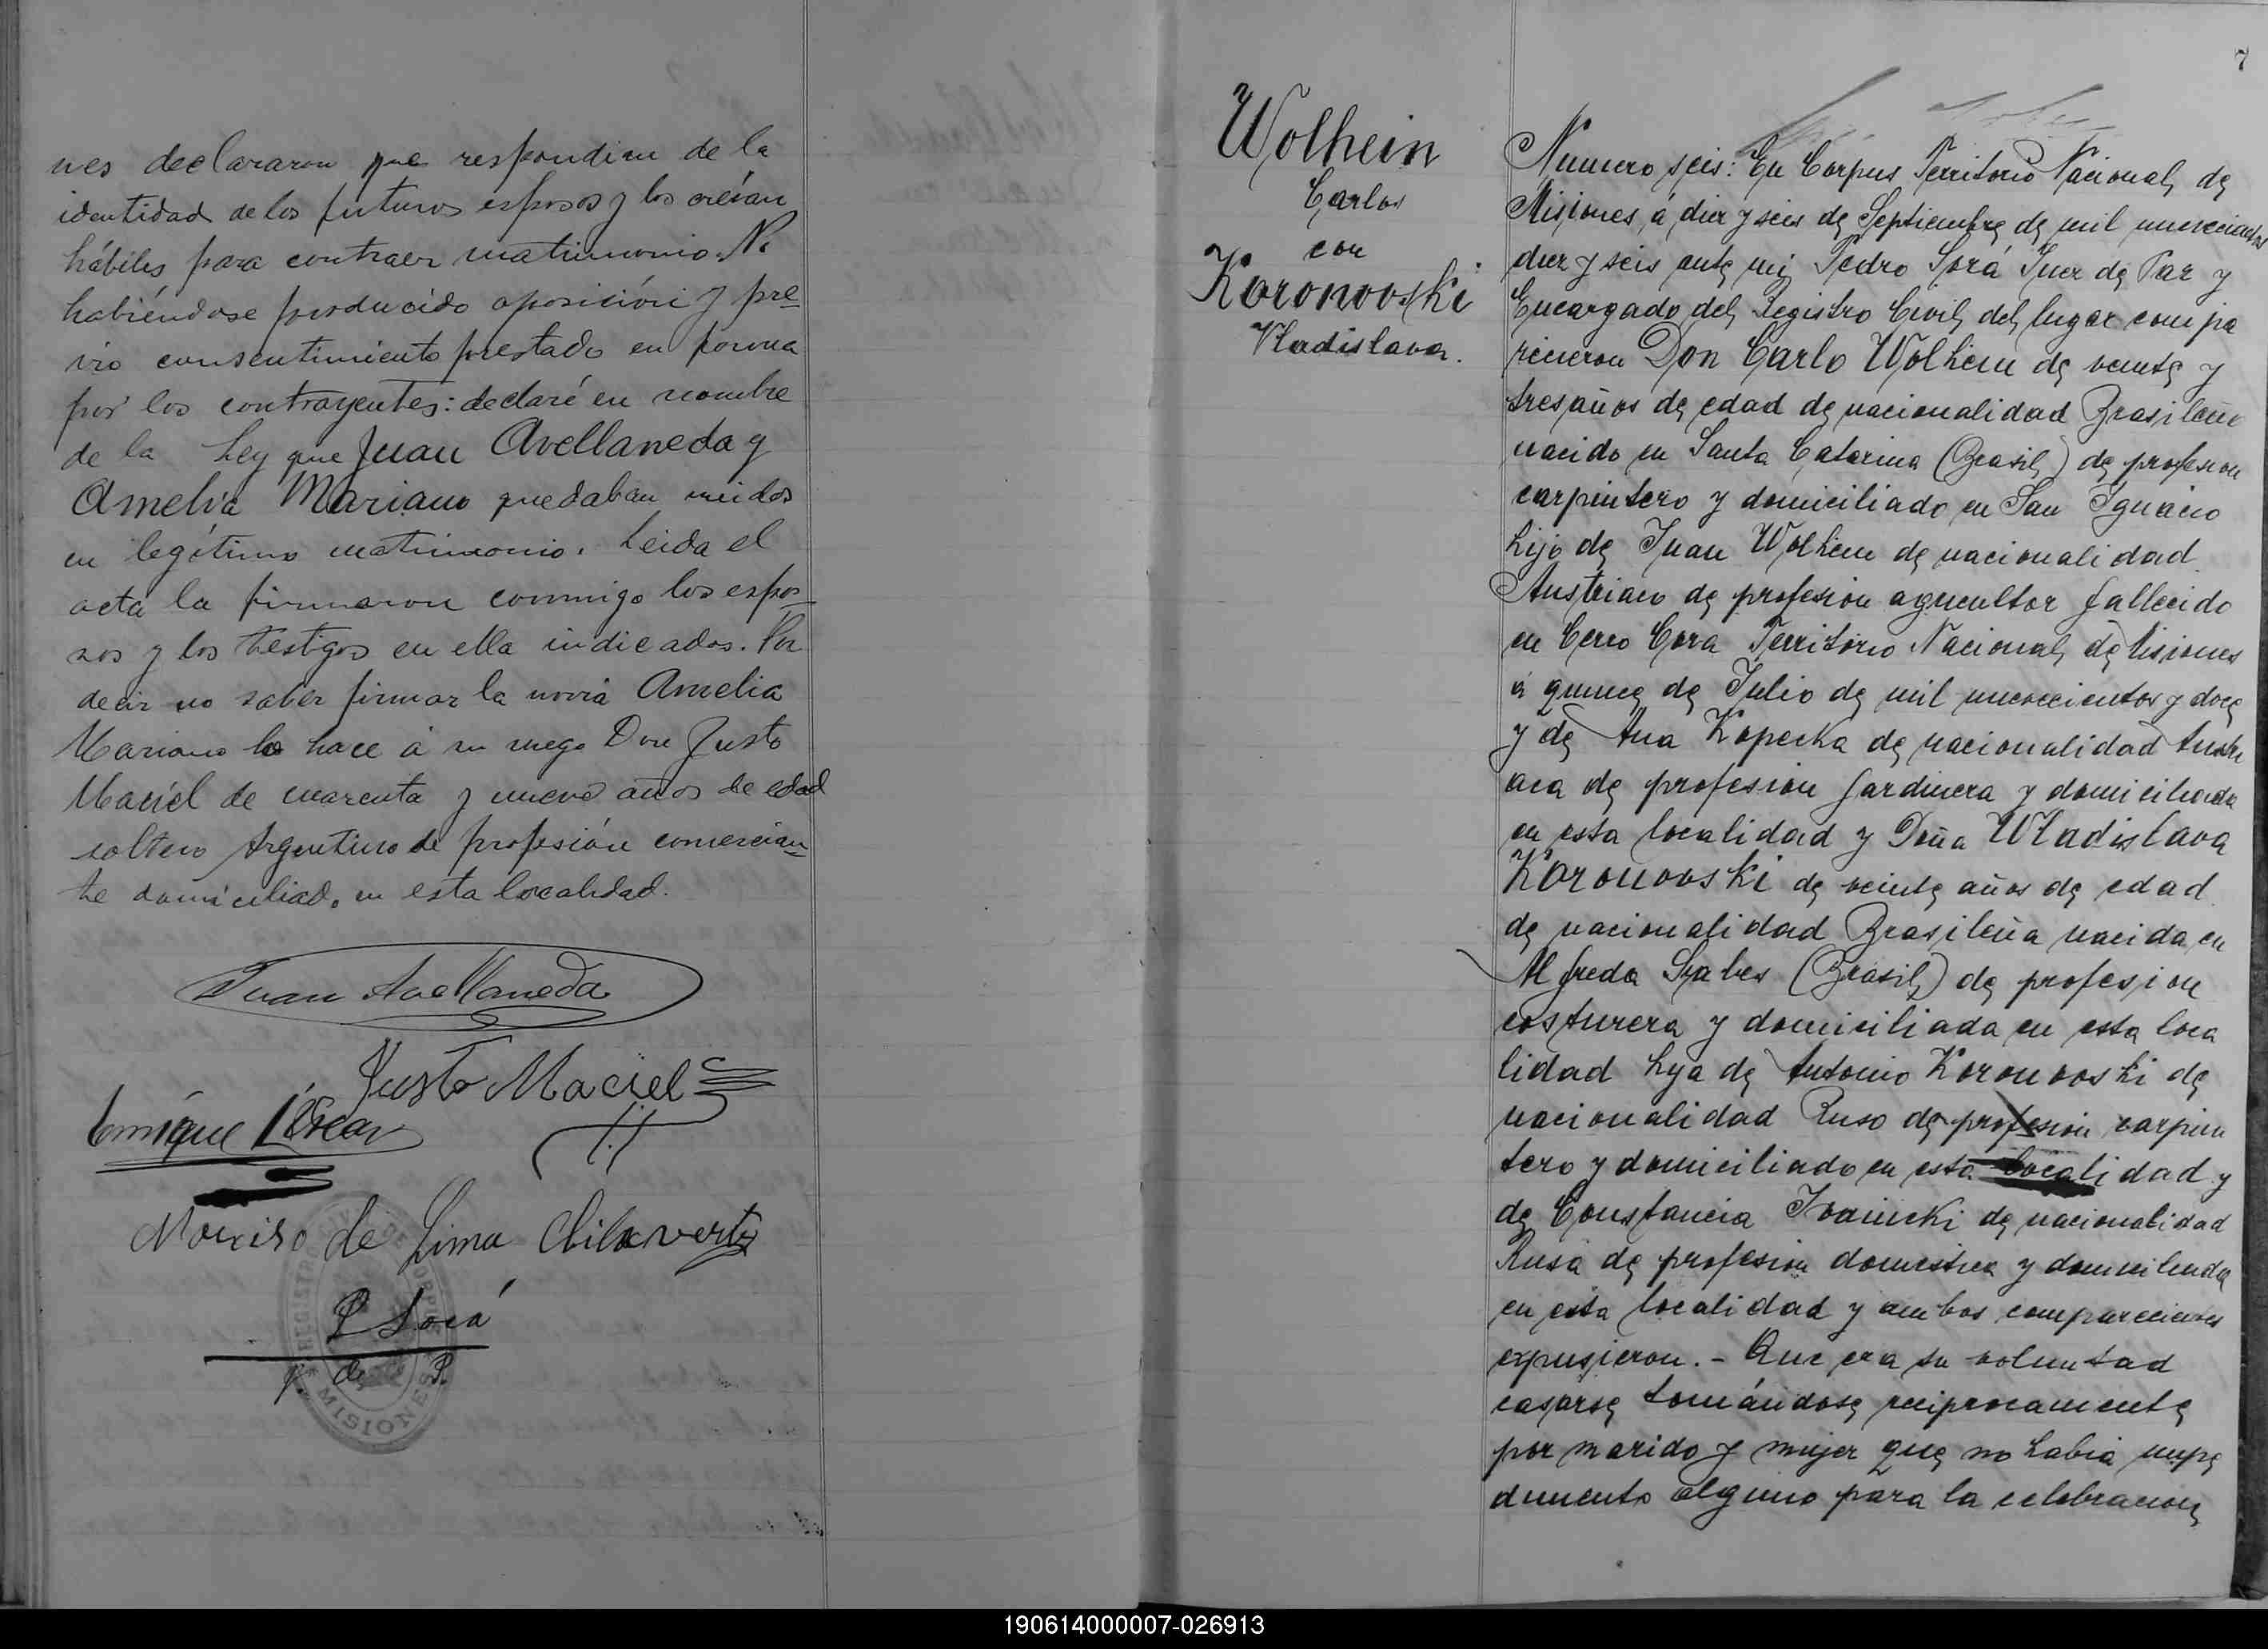 nes declararon que respondian de la
identidad de los futuros esposos y los creían
hábiles para contraer matrimonio. No
habiéndose producido oposición y pre-
vio consentimiento prestado en forma
por los contrayentes: declaré en nombre
de la Ley que Juan Avellaneda y
Amelia Mariano quedaban unidos
en legítimo matrimonio. Leida el
acta la firmaron conmigo los espo-
sos y los testigos en ella indicados. Por
decir no saber firmar la novia Amelia
Mariano lo hace á su ruego Don Justo
Maciel de cuarenta y nueve años de edad
soltero Argentino de profesión comercian-
te domiciliado en esta localidad.
Juan Avellaneda
Justo Maciel
Enrique
de Lima Chilavert
P Sorá
J. de P.
REGISTRO CIVIL DE CORPUS
MISIONES
7
Wolhein
Carlos
con
Koronovski
Vladislava.
Numero seis: En Corpus Territorio Nacional de
Misiones á diez y seis de Septiembre de mil novecientos
diez y seis ante mi Pedro Sorá Juez de Paz y
Encargado del Registro Civil del lugar compa
recieron Don Carlo Wolhein de veinte y
tres años de edad de nacionalidad Brasileño
nacido en Santa Catarina (Brasil) de profesion
carpintero y domiciliado en San Ignacio
hijo de Juan Wolhein de nacionalidad
Austriaco de profesion agricultor fallecido
en Cerro Cora Territorio Nacional de Misiones
á quince de Julio de mil novecientos y doce
y de Ana Kopecka de nacionalidad Austri
aca de profesion Jardinera y domiciliada
en esta localidad y Doña Wladislava
Koronovski de veinte años de edad
de nacionalidad Brasileña nacida en
Alfredo (Brasil) de profesion
costurera y domiciliada en esta loca
lidad hija de Antonio Koronovski de
nacionalidad Ruso de profesion carpin
tero y domiciliado en esta localidad y
de Constancia Ivanicki de nacionalidad
Rusa de profesion domestica y domiciliada
en esta localidad y ambos comparecientes
expusieron. - Que era su voluntad
casarse tomándose reciprocamente
por marido y mujer que no habia impe
dimento alguno para la celebracion
190614000007-026913